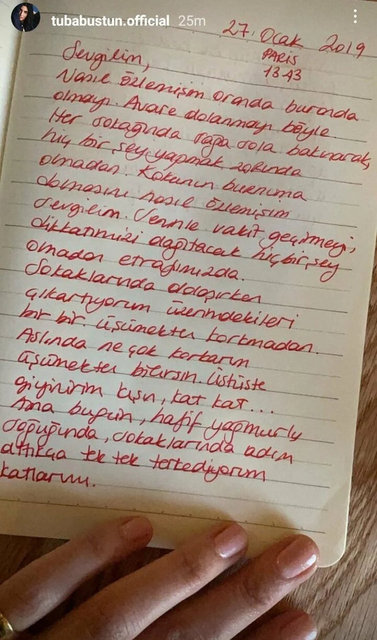 tubabustun.official 25m
27 Ocak 2019
PARİS
13.43
Sevgilim,
Nasıl özlemişim oranda buranda
olmayı. Avare dolanmayı böyle
Her sokağında sağa sola bakınarak,
hiç bir şey yapmak zorunda
olmadan. Kokunun burnuma
dolmasını nasıl özlemişim
sevgilim. Senle vakit geçirmeyi,
dikkatimizi dağıtacak hiçbirşey
olmadan etrafımızda.
Sokaklarında dolaşırken
çıkartıyorum üzerimdekileri
bir bir. Üşümekten korkmadan.
Aslında ne çok korkarım
üşümekten bilirsin. Üstüste
giyinirim kışın, kat kat...
Ama bugün, hafif yağmurlu
soğuğunda, sokaklarında adım
attıkça tek tek terkediyorum
katlarımı.